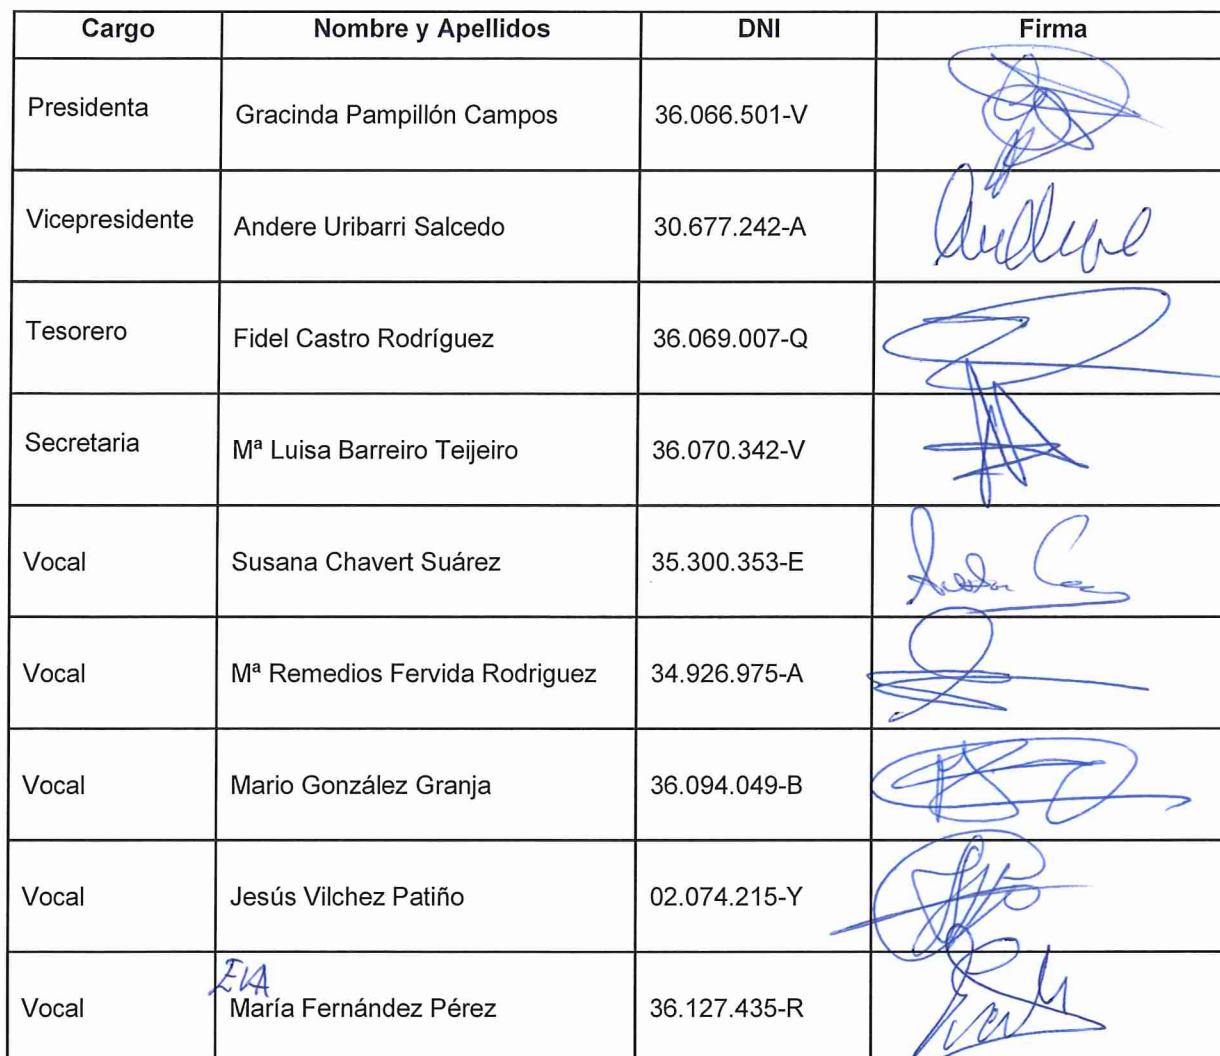 Cargo Nombre y Apellidos DNI Firma
Presidenta Gracinda Pampillón Campos 36.066.501-V
Vicepresidente Andere Uribarri Salcedo 30.677.242-A
Tesorero Fidel Castro Rodríguez 36.069.007-Q
Secretaria Mª Luisa Barreiro Teijeiro 36.070.342-V
Vocal Susana Chavert Suárez 35.300.353-E
Vocal Mª Remedios Fervida Rodriguez 34.926.975-A
Vocal Mario González Granja 36.094.049-B
Vocal Jesús Vilchez Patiño 02.074.215-Y
EVA
Vocal María Fernández Pérez 36.127.435-R